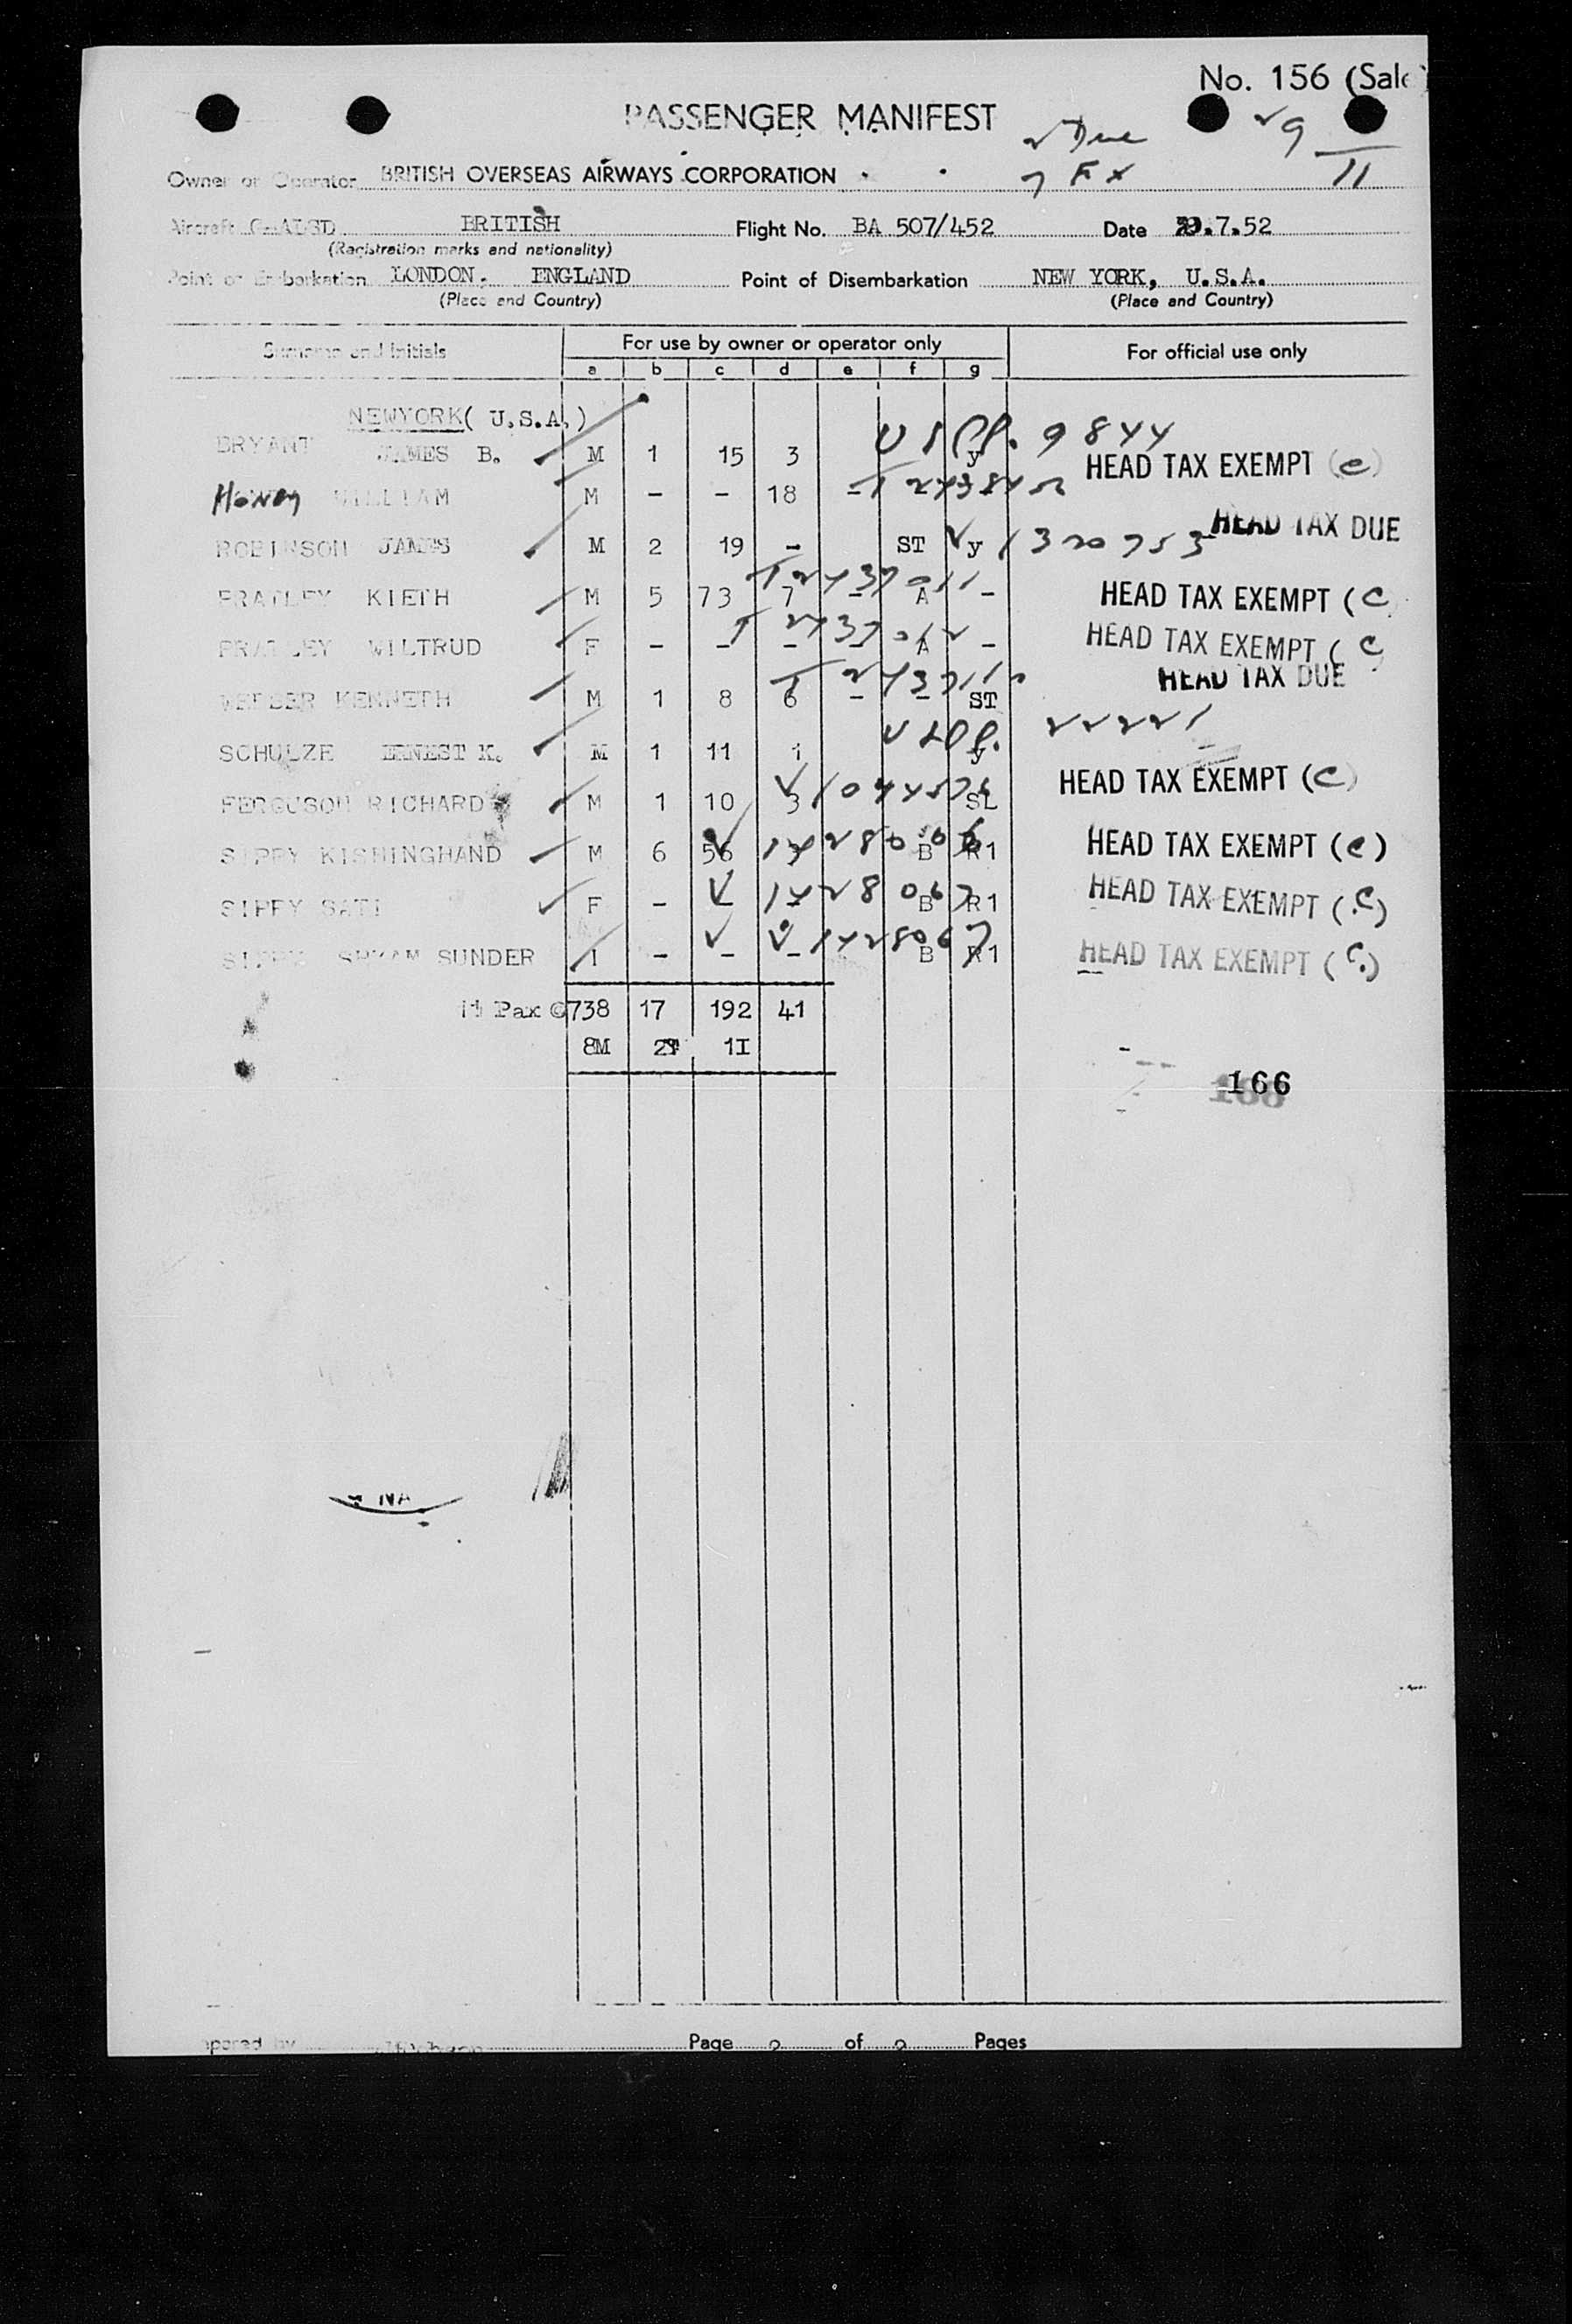 No. 156 (Sale
PASSENGER MANIFEST
Due
9
Owner or Operator BRITISH OVERSEAS AIRWAYS CORPORATION
7 Ex
11
Aircraft BRITISH Flight No. BA 507/452 Date .7.52
(Registration marks and nationality)
Point of Embarkation LONDON. ENGLAND Point of Disembarkation NEW YORK, U.S.A.
(Place and Country) (Place and Country)
Surname and Initials For use by owner or operator only For official use only
a b c d e f g
NEWYORK( U.S.A.)
BRYANT JAMES B. M 1 15 3 y 9844 HEAD TAX EXEMPT (c)
Honey WILLIAM M - - 18 -
HEAD TAX DUE
ROBINSON JAMES M 2 19 - ST y 1320753
PRATLEY KIETH M 5 73 7 - A - HEAD TAX EXEMPT (C
PRATLEY WILTRUD F - - - - A - HEAD TAX EXEMPT ( C
HEAD TAX DUE
KENNETH M 1 8 6 - - ST
SCHULZE ERNEST K. M 1 11 1 y 22221
HEAD TAX EXEMPT (C)
FERGUSON RICHARD M 1 10 3 SL
SIPPY KISHINGHAND M 6 56 B R1 HEAD TAX EXEMPT (c)
SIPPY SATI F - - - B R1 HEAD TAX EXEMPT (C)
SIPPY SHYAM SUNDER I - - - B R1 HEAD TAX EXEMPT (C.)
11 Pax 738 17 192 41
8M 1I
166
Page 2 of 2 Pages